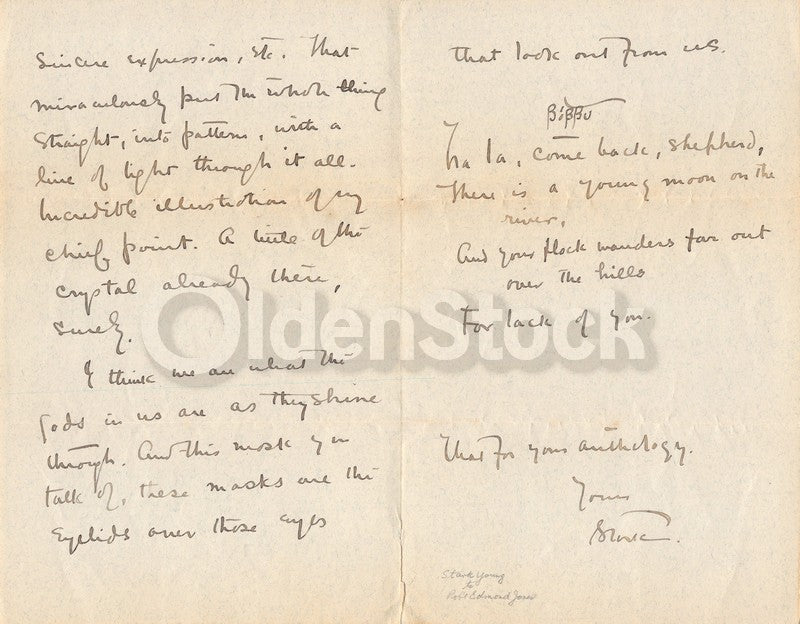 sincere expression, etc. That
miraculously put the whole thing
straight, into pattern, with a
line of light through it all.
Incredible illustration of my
chief point. A little of the
crystal already there,
surely.
I think we are what the
gods in us are as they shine
through. And this mask you
talk of, these masks are the
eyelids over those eyes
that look out from us.
Tra la, come back, shepherd,
There is a young moon on the
river,
And your flock wanders far out
over the hills
For lack of you.
That for your anthology.
Yours
Stark.
Stark Young
to
Robt Edmond Jones
OldenStock